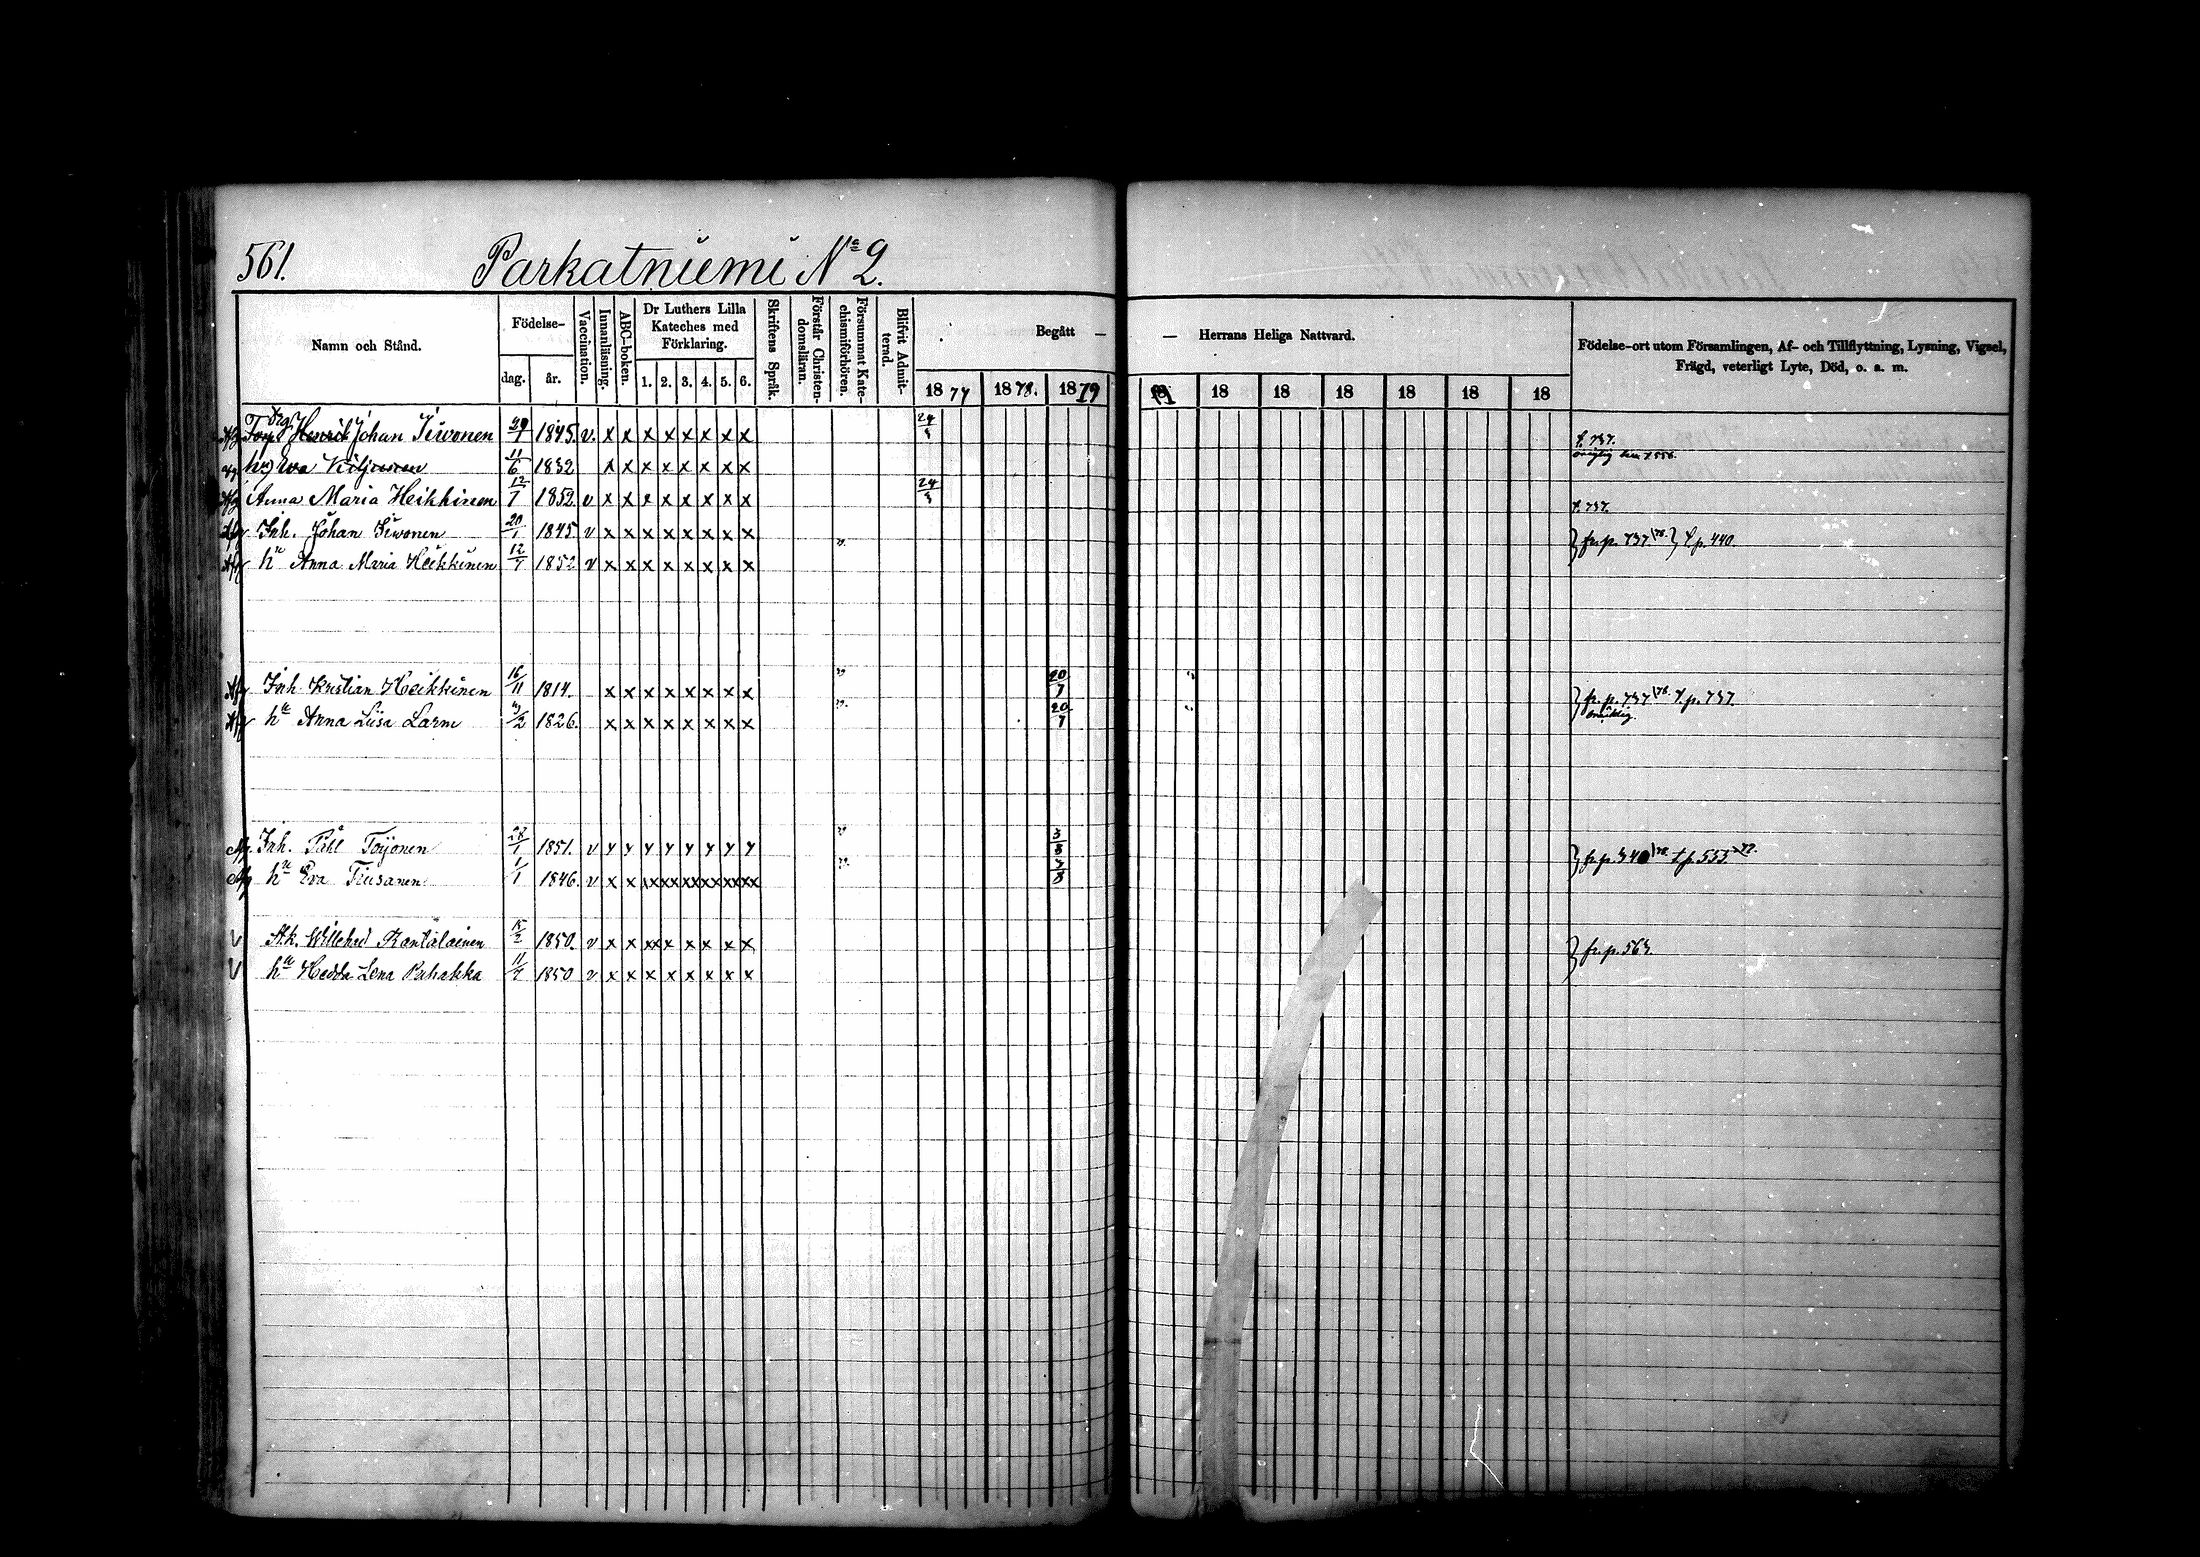 561. Parkatniemi Nº 2.
Namn och Stånd.
Födelse-
dag. år.
Vaccination.
Innanläsning.
ABC-boken.
Dr Luthers Lilla
Kateches med
Förklaring.
1. 2. 3. 4. 5. 6.
Skriftens Språk.
Förstår Christen-
domsläran.
Försummat Kate-
chismiförhören.
Blifvit Admit-
terad.
Begått — — Herrans Heliga Nattvard.
1877 1878. 1879 18 18 18 18 18 18 18
Födelse-ort utom Församlingen, Af- och Tillflyttning, Lysning, Vigsel,
Frägd, veterligt Lyte, Död, o. a. m.
Henrik Johan Siwonen 1845. v. x x x x x x x x 24 t. 737.
Eva 11/6 1832 x x x x x x x x
Anna Maria Heikkinen 12/7 1852. v x x x x x x x x 24 t. 737.
Inh. Johan Siwonen 20/1 1845 v x x x x x x x x fr. p. 737 78. t p. 440.
hu Anna Maria Heikkinen 12/7 1852 v x x x x x x x x
Inh Kristian Heikkinen 16/11 1814. x x x x x x x x 20/7 fr. p. 737 78. t. p. 737.
hu Anna Liisa Larm 1826. x x x x x x x x 20/7
Inh. Påhl Toijonen 1851. v
hu Eva Tiusanen 1/1 1846. v t p. 555
Willehad Rantalainen 15/2 1850. v x x xx x x x x x fr. p. 563.
hu Hedda Lena Puhakka 11/7 1850 v x x x x x x x x